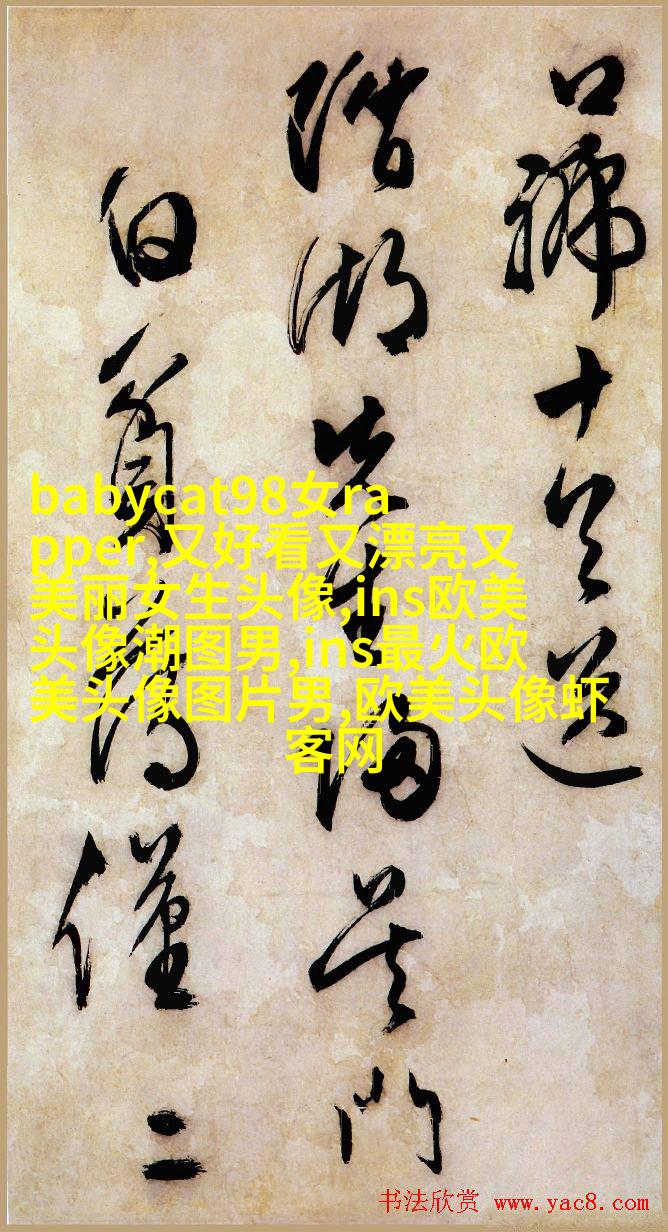 口號十送
湖先生歸吳門
白僅二
babycat98女ra
pper,又好看又漂亮又
美丽女生头像,ins欧美
头像潮图男,ins最火欧
美头像图片男,欧美头像虾
客网
书法欣赏 www.yac8.com